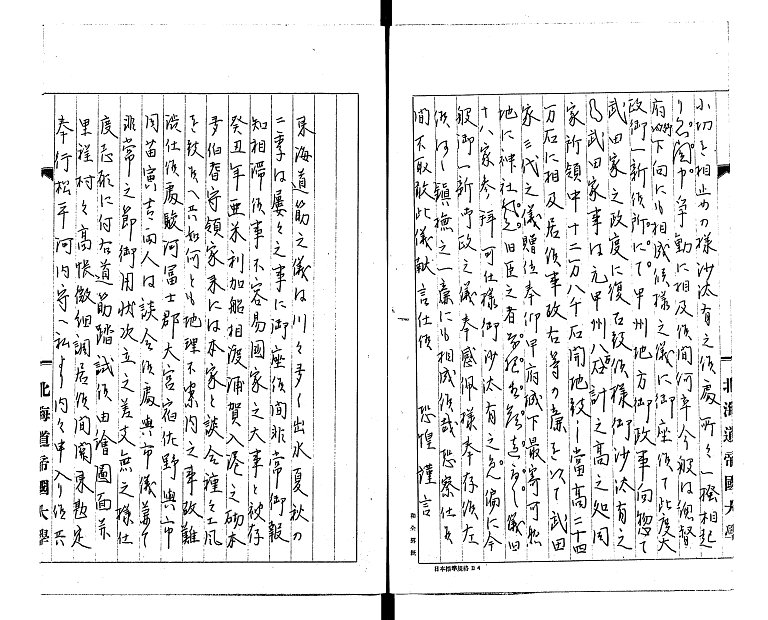 小切を相止め候様沙汰有之候處所々一揆相起
り忽聞巾爭動に相及候間何卒今般は總督
府御下向にも相成候様之儀に御座候て此度大
政御一新候所にて甲州地方御政事向惣て
武田家之政度に復古致候様御沙汰有之
乃武田家事は元甲州八万計之高之処同
家所領中十二万八千石開地致し當高二十四
万石に相及居候事故右等の廉を以て武田
家三代之儀贈位奉仰甲府城下最寄可然
地に神社旧臣之者儀旧
十八家参拜可仕様御沙汰有之偏に今
般御一新御政之儀奉感佩様奉存候左
候はゞ鎮撫之一廉にも相成候哉恐察仕候
間不取敢此儀献言仕候 恐惶謹言
東海道筋之儀は川々多く出水夏秋の
二季は屡々之事に御座候間非常御報
知相滞候事不容易國家之大事と被存
癸丑年亜米利加船相渡浦賀入港之砌本
多伯耆守領家来には本家と談合種々工風
を致候へ共如何とも地理不案内之事故難
渋仕候處駿河冨士郡大宮宿佐野與市
同苗寅吉兩人は談合候處與市儀兼て
非常之節御用状次立之差支無之様仕
度志願に付右道筋踏試候由繪圖面并
里程村々高帳微細調居候間関東勘定
奉行松平河内守へ私より内々申入り候共
北海道帝國大學
北海道帝國大學
日本標準規格 B4